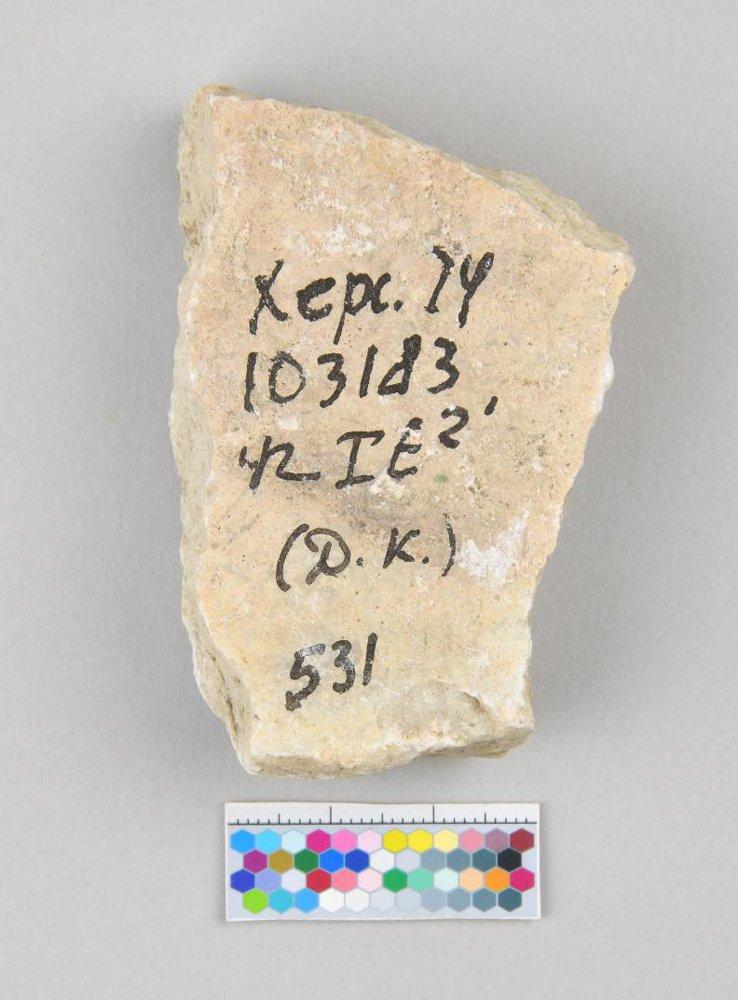 Херс. 74
103183
IE²'
(Д.К.)
531